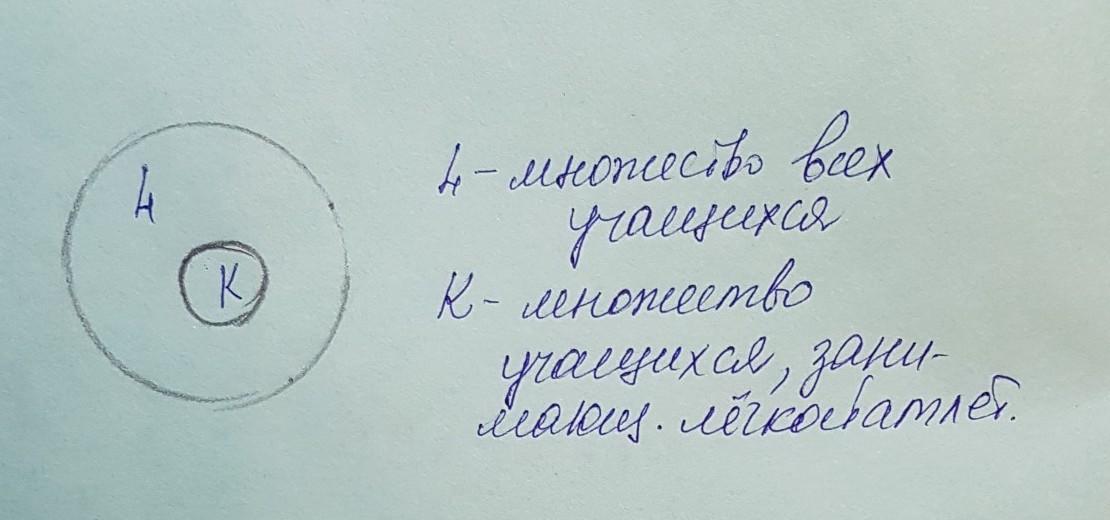 Ч
К
Ч - множество всех
учащихся
К - множество
учащихся, зани-
мающ. лёгкой атлет.